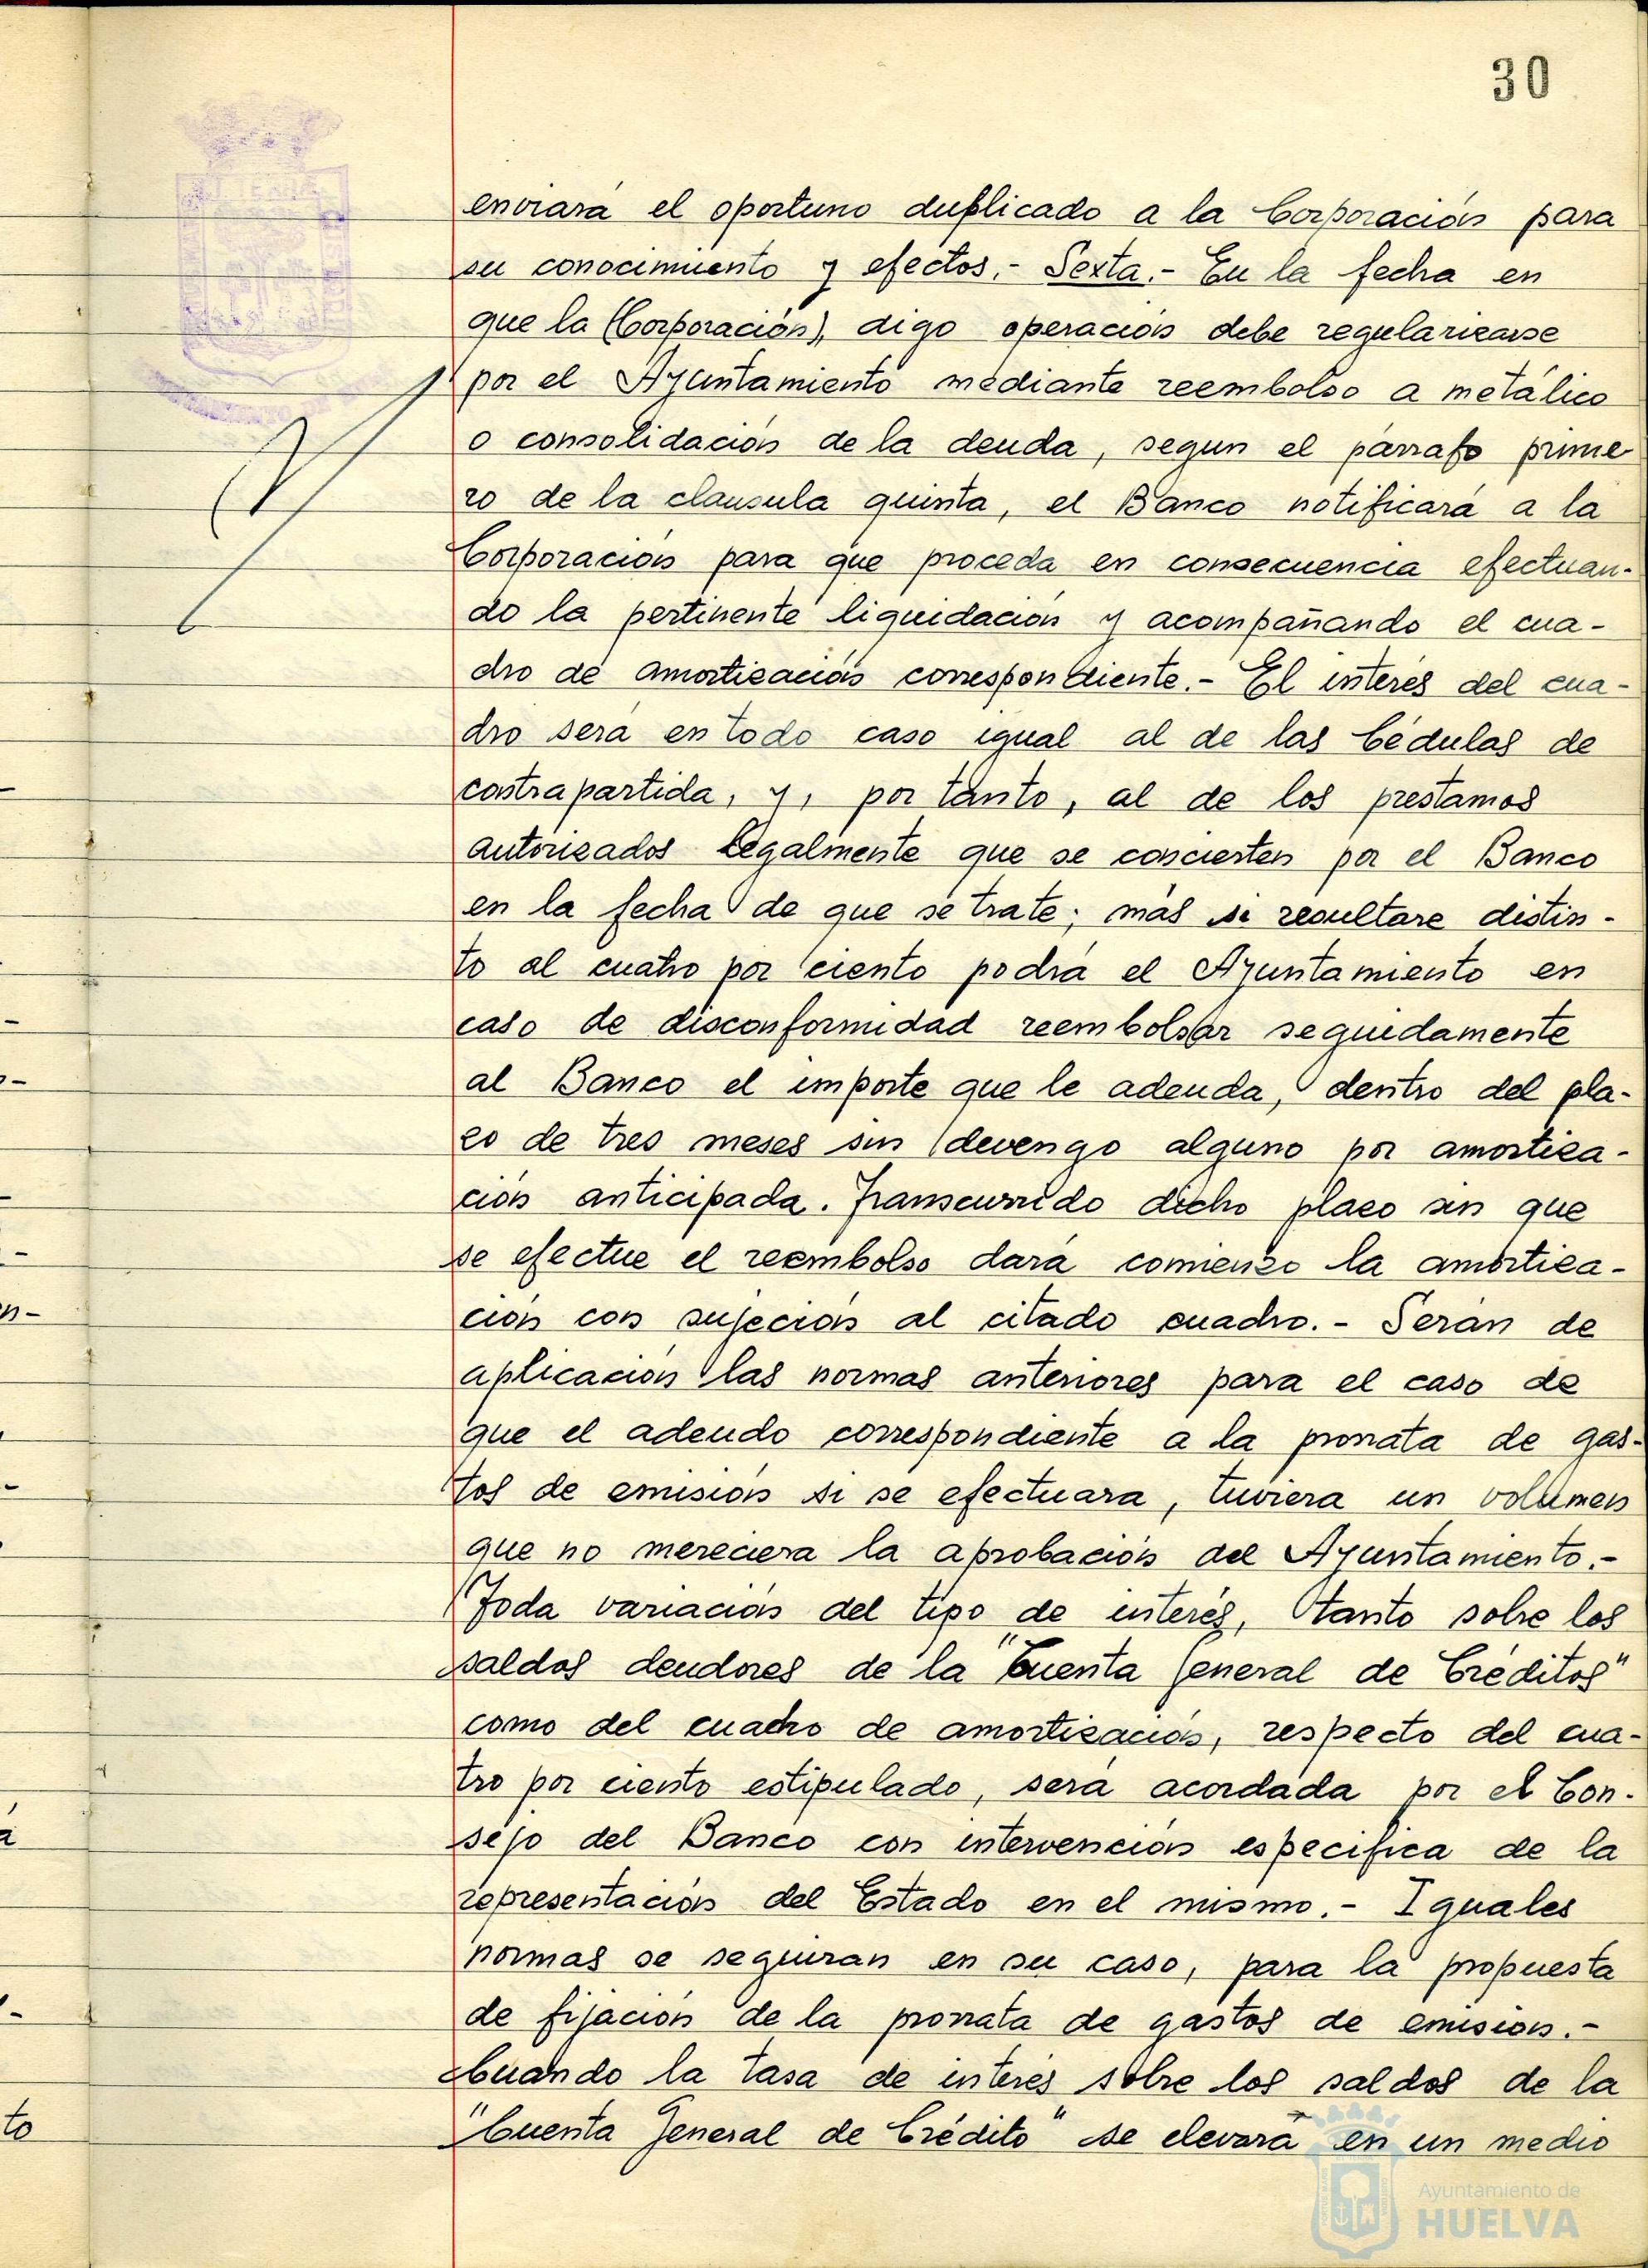 30
enviará el oportuno duplicado a la Corporación para
su conocimiento y efectos.- Sexta.- En la fecha en
que la (Corporación), digo operación debe regularizarse
por el Ayuntamiento mediante reembolso a metálico
o consolidación de la deuda, segun el párrafo prime-
ro de la clausula quinta, el Banco notificará a la
Corporación para que proceda en consecuencia efectuan-
do la pertinente liquidación y acompañando el cua-
dro de amortización correspondiente.- El interés del cua-
dro será en todo caso igual al de las Cédulas de
contrapartida, y, por tanto, al de los prestamos
autorizados legalmente que se concierten por el Banco
en la fecha de que se trate; más si resultare distin-
to al cuatro por ciento podrá el Ayuntamiento en
caso de disconformidad reembolsar seguidamente
al Banco el importe que le adeuda, dentro del pla-
zo de tres meses sin devengo alguno por amortiza-
ción anticipada. Transcurrido dicho plazo sin que
se efectue el reembolso dará comienzo la amortiza-
ción con sujeción al citado cuadro.- Serán de
aplicación las normas anteriores para el caso de
que el adeudo correspondiente a la prorrata de gas-
tos de emisión si se efectuara, tuviera un volumen
que no mereciera la aprobación del Ayuntamiento.-
Toda variación del tipo de interés, tanto sobre los
saldos deudores de la "Cuenta General de Créditos"
como del cuadro de amortización, respecto del cua-
tro por ciento estipulado, será acordada por el Con-
sejo del Banco con intervención especifica de la
representación del Estado en el mismo.- Iguales
normas se seguiran en su caso, para la propuesta
de fijación de la prorrata de gastos de emisión.-
Cuando la tasa de interés sobre los saldos de la
"Cuenta General de Crédito" se elevará en un medio
to
Ayuntamiento de
HUELVA